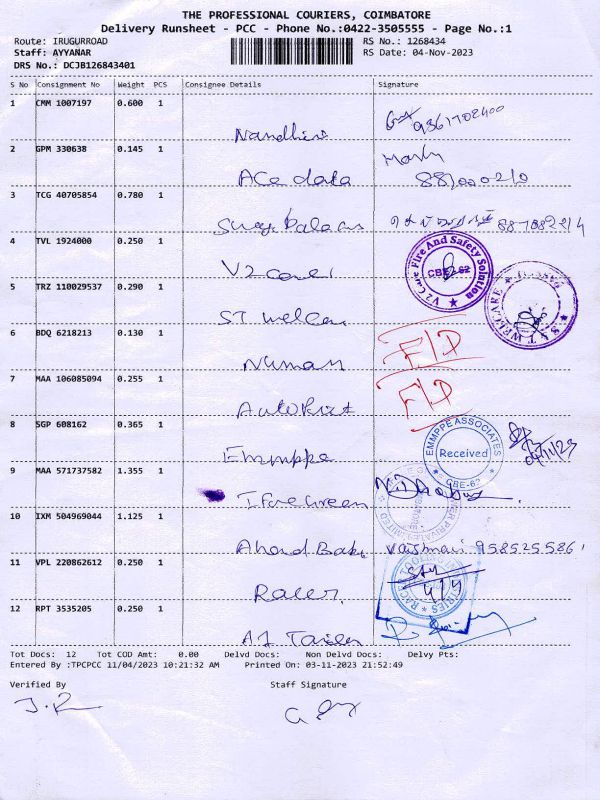 THE PROFESSIONAL COURIERS, COIMBATORE
Delivery Runsheet - PCC - Phone No.:0422-3505555 - Page No.:1
Route: IRUGURROAD
RS No.: 1268434
Staff: AYYANAR
RS Date: 04-Nov-2023
DRS No.: DCJB126843401
S No Consignment No Weight PCS Consignee Details Signature
1 CMM 1007197 0.600 1 Nandhini 9361702400
2 GPM 330638 0.145 1 ACe data
3 TCG 40705854 0.780 1
4 TVL 1924000 0.250 1 V2 cover
V2 Care Fire And Safety Solution CBE-62
5 TRZ 110029537 0.290 1 ST
6 BDQ 6218213 0.130 1 Numan F/D
7 MAA 106085094 0.255 1 F/D
8 SGP 608162 0.365 1 Emmppe
EMMPPE ASSOCIATES Received CBE-62
04/11/23
9 MAA 571737582 1.355 1
10 IXM 504969044 1.125 1
11 VPL 220862612 0.250 1 Racer
12 RPT 3535205 0.250 1
Tot Docs: 12 Tot COD Amt: 0.00 Delvd Docs: Non Delvd Docs: Delvy Pts:
Entered By :TPCPCC 11/04/2023 10:21:32 AM Printed On: 03-11-2023 21:52:49
Verified By Staff Signature